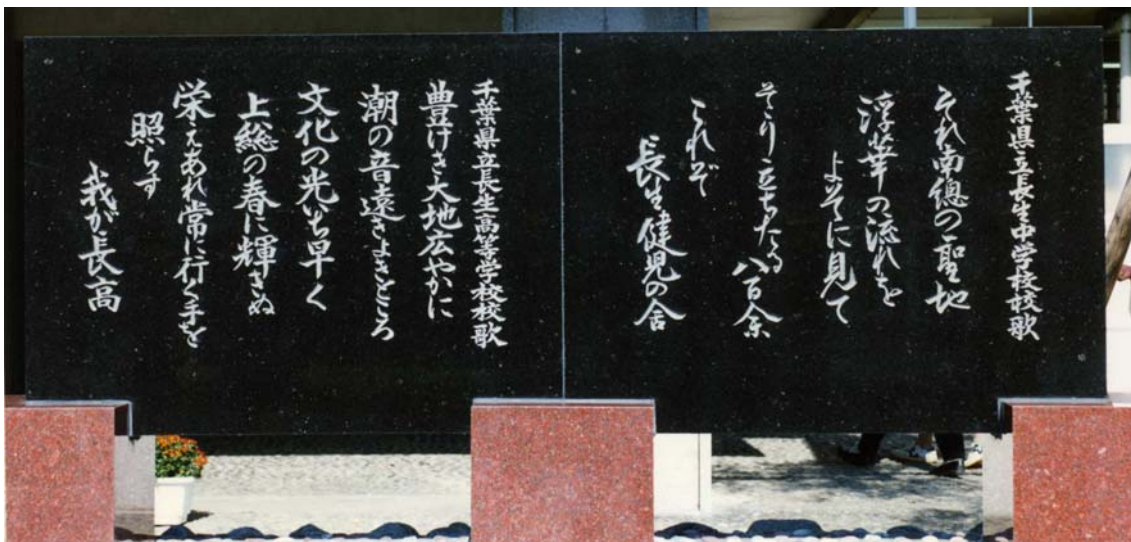 千葉県立長生中学校校歌
それ南總の聖地
浮華の流れを
よそに見て
そゝり立ちたる八百余
これぞ
長生健児の舎
千葉県立長生高等学校校歌
豊けき大地広やかに
潮の音遠きよきところ
文化の光いち早く
上総の春に輝きぬ
栄えあれ常に行く手を
照らす
我が長高